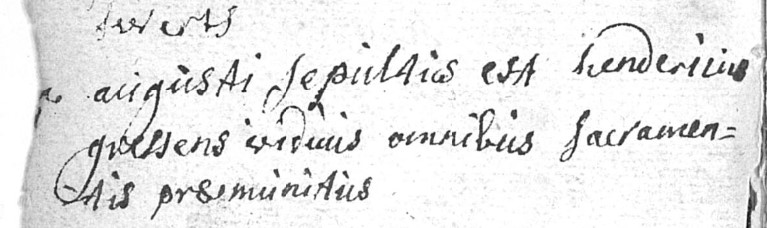 augusti sepultus est hendericus
gressens viduus omnibus sacramen=
tis præmunitus